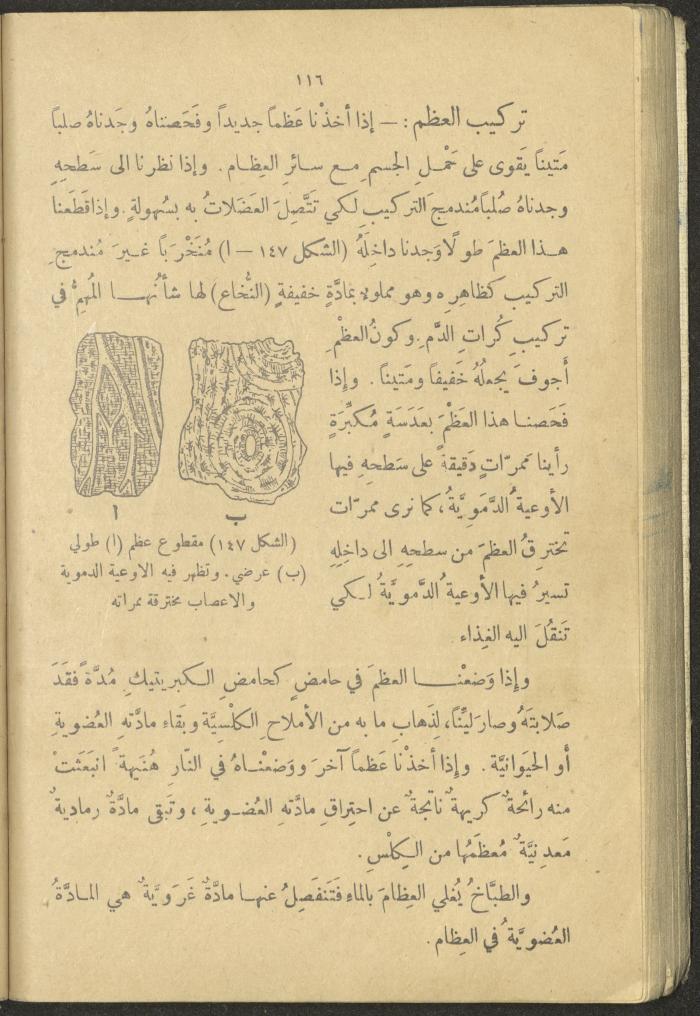 ١١٦
تركيب العظم : — إذا أخذْنا عَظماً جديداً وفَحَصناهُ وجَدناهُ صلباً
مَتيناً يَقوى على حَمْلِ الجسمِ مع سائرِ العِظام . وإذا نظرنا الى سَطحِهِ
وجدناهُ صُلباً مُندمجَ التركيبِ لكي تتَّصِلَ العَضَلاتُ به بسُهولةٍ . وإذا قَطَعنا
هذا العظمَ طولًا وَجدنا داخِلَهُ (الشكل ١٤٧ — ا) مُنَخْرَباً غيرَ مُندمجِ
التركيب كظاهِرِه وهو مملوء بمادَّةٍ خفيفةٍ (النُّخاع) لها شأنُها المُهِمُّ في
تركيبِ كُراتِ الدَّمِ . وكونُ العظْمِ
أَجوفَ يجعلُهُ خَفيفاً ومَتيناً . وإذا
فَحَصنا هذا العَظْمَ بعَدَسَةٍ مُكبِّرَةٍ
رأينا مَمرّاتٍ دَقيقةً على سَطحِهِ فيها
الأوعيةُ الدَّمَوِيَّةُ ، كما نرى ممرّات
تخترِقُ العظمَ من سطحِهِ الى داخِلِهِ
تسيرُ فيها الأوعيةُ الدَّمويَّةُ لكي
تَنقُلَ اليه الغِذاء
ا
ب
(الشكل ١٤٧) مقطوع عظم (ا) طولي
(ب) عرضي . وتظهر فيه الاوعية الدموية
والاعصاب مخترقة ممراته
وإذا وَضعْنا العظمَ في حامضٍ كحامضِ الكبريتيك مُدَّةً فقَدَ
صَلابتَهُ وصار ليِّنًا ، لِذَهابِ ما به من الأملاحِ الكلْسِيَّة وبَقاءِ مادَّتهِ العُضويةِ
أو الحيَوانيَّة . وإِذا أخذْنا عَظماً آخرَ ووَضعْناهُ في النّارِ هُنَيهةً انبَعَثتْ
منه رائحةٌ كريهةٌ ناتجةٌ عن احتِراقِ مادَّتهِ العُضويةِ ، وتَبقى مادَّةٌ رماديةٌ
مَعدِنيَّةٌ مُعظَمُها من الكِلْسِ .
والطبَّاخُ يُغلي العِظامَ بالماءِ فتَنفَصِلُ عنها مادَّةٌ غَرَوِيَّةٌ هي المادَّةُ
العُضويَّةُ في العِظام .